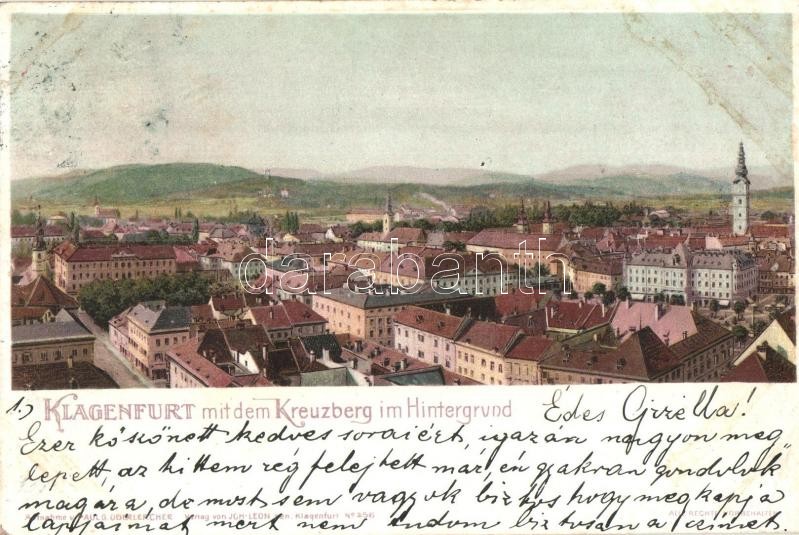 darabanth
1.) KLAGENFURT mit dem Kreuzberg im Hintergrund Édes Gizella!
Ezer köszönett kedves soraiért, igazán nagyon meg„
lepett, az hittem rég felejtett már, én gyakran gondolok
magára, de most sem vagyok biztos hogy megkapja
Aufnahme v. PAUL O. ODERLERCHER Verlag von JOH. LEON sen. Klagenfurt No 256 ALLE RECHTE VORBEHALTEN
lapjaimat mert nem tudom biztosan a czimet.